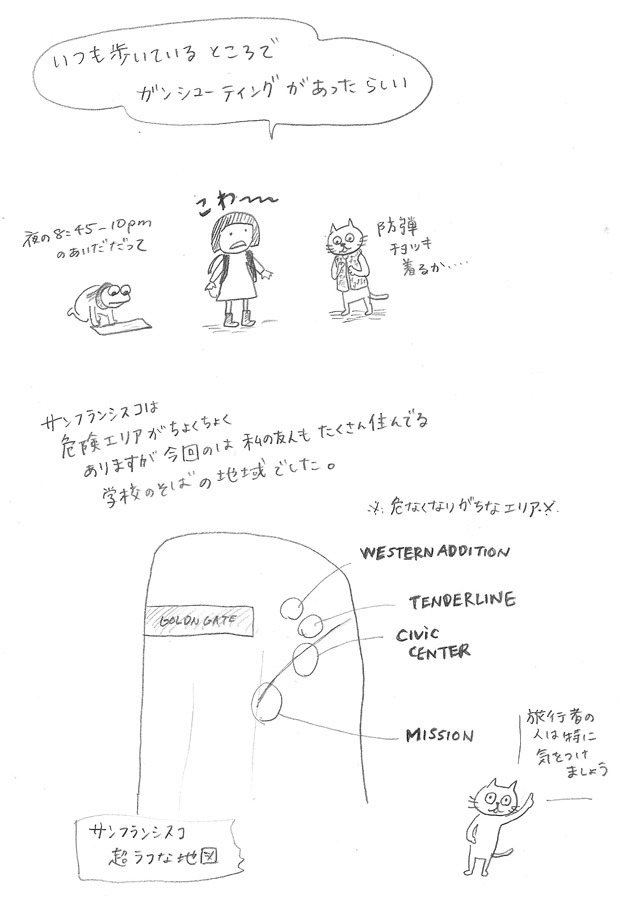 いつも歩いているところで
ガンシューティングがあったらしい
こわ〜〜
夜の8:45-10pm
のあいだだって
防弾
チョッキ
着るか....
サンフランシスコは
危険エリアがちょくちょく
ありますが今回のは私の友人もたくさん住んでる
学校のそばの地域でした。
※危なくなりがちなエリア※
WESTERN ADDITION
TENDERLINE
GOLDN GATE
CIVIC
CENTER
MISSION
旅行者の
人は特に
気をつけ
ましょう
サンフランシスコ
超ラフな地図